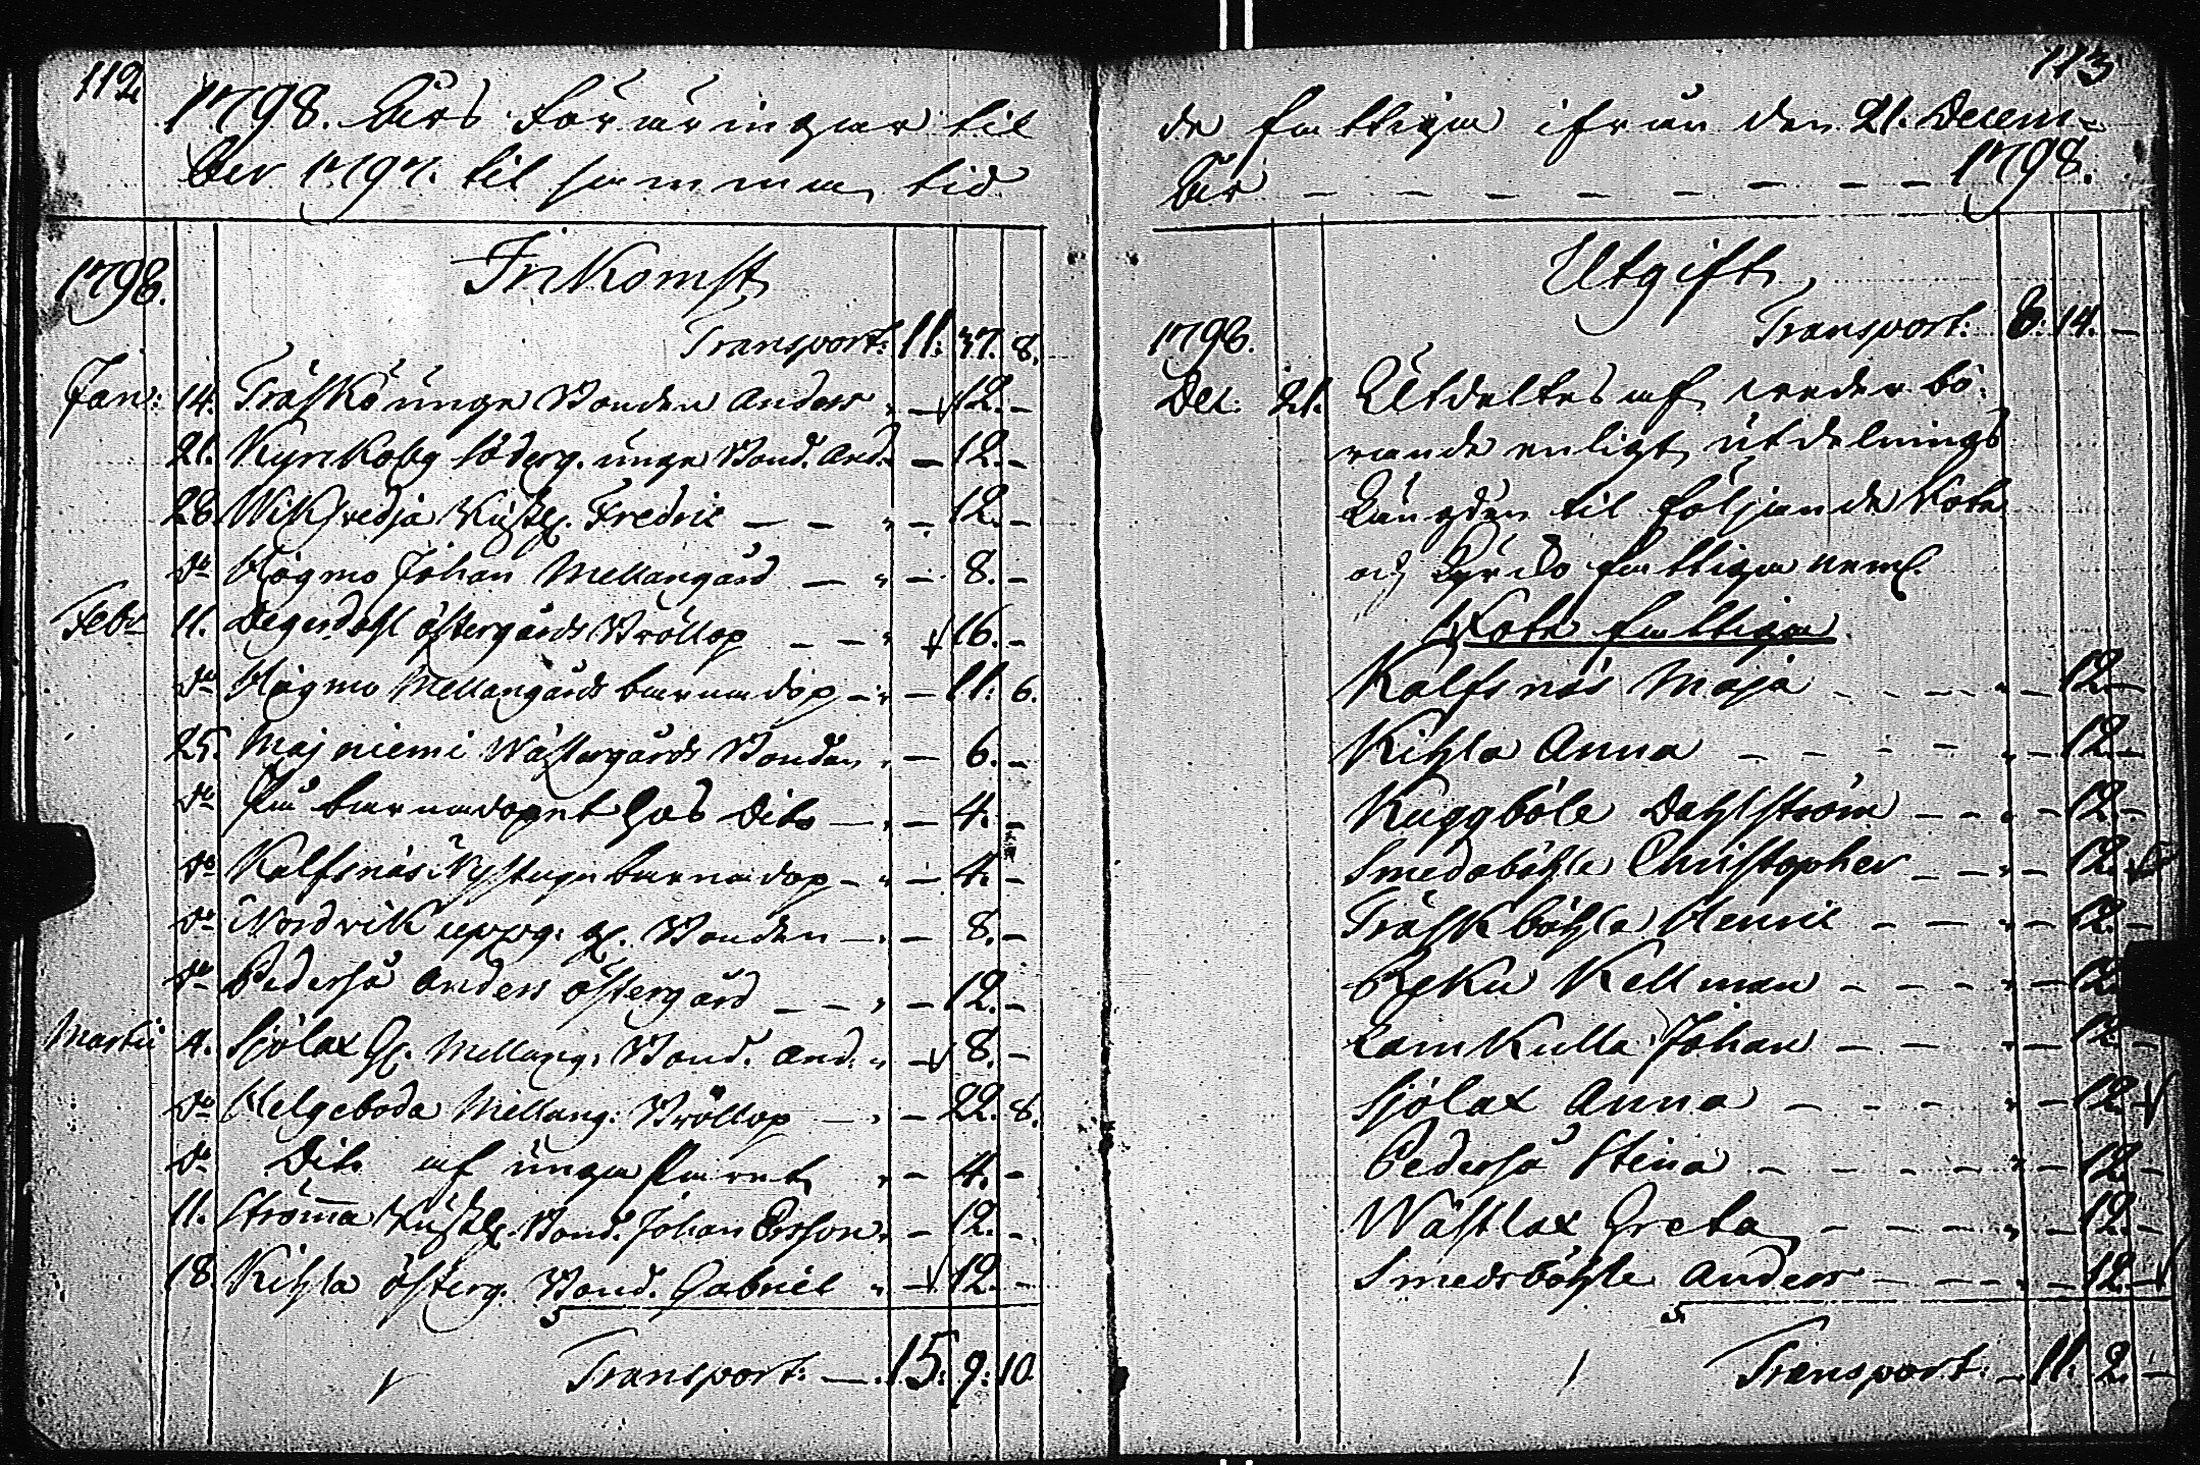 112
1798. Års Föräringar til
ber 1797. til samma tid
1798.
Inkomst
Transport: 11. 37. 8.
Jan: 14. Träskö unge Bonden Anders " – 12. –
21. Kyrkoby söderg. unge Bond. And. " – 12. –
28. Wiksvedja Fredric – – " – 12. –
do Högmo Johan Mellangård – " – 8. –
Febr 11. Degerdahl östergårds Bröllop – – " 16. –
do Högmo Mellangårds barnadop – " – 11. 6.
25. Majniemi Wästergårds Bonden " – 6. –
do På barnadopet hos Dito – " – 4. –
do Kalfsnäs Nystugu barnadop – " – 4. –
do Nordvik uppg. gl. Bonden – " – 8. –
do Pederså Anders östergård – – " – 12. –
Martii 4. Sjölax gl. Mellang. Bond. And. " – 8. –
do Helgeboda Mellang: Bröllop – " – 22. 8.
do Dito af unga Paret " – 4. –
11. Strömma Bond. Johan Ersson " – 12. –
18. Kihla österg. Bond. Gabriel " – 12. –
Transport: – 15. 9. 10.
113
de fattiga ifrån den 21. Decem-
ber – – – – – – – – 1798.
Utgift
1798. Transport: 8. 14. –
Dec: 21. Utdeltes af wederbö-
rande enligt utdelnings
Längden til följande Rote
och fattiga neml.
Rote fattiga
Kalfsnäs Maja – – – – " – 12. –
Kihla Anna – – – – " – 12. –
Kuggböle Dahlström – – " – 12. –
Smedsböhle Christopher – – " – 12.
Träskböhle Henric – – " – 12. –
Reku Kellman – – – " – 12.
Lamkulla Johan – – – " – 12. –
Sjölax Anna – – – – " – 12.
Pederså Stina – – – – " – 12. –
Wästlax Greta – – – – " – 12. –
Smedsböhle Anders – – – " – 12. –
Transport: – 11. 2. –